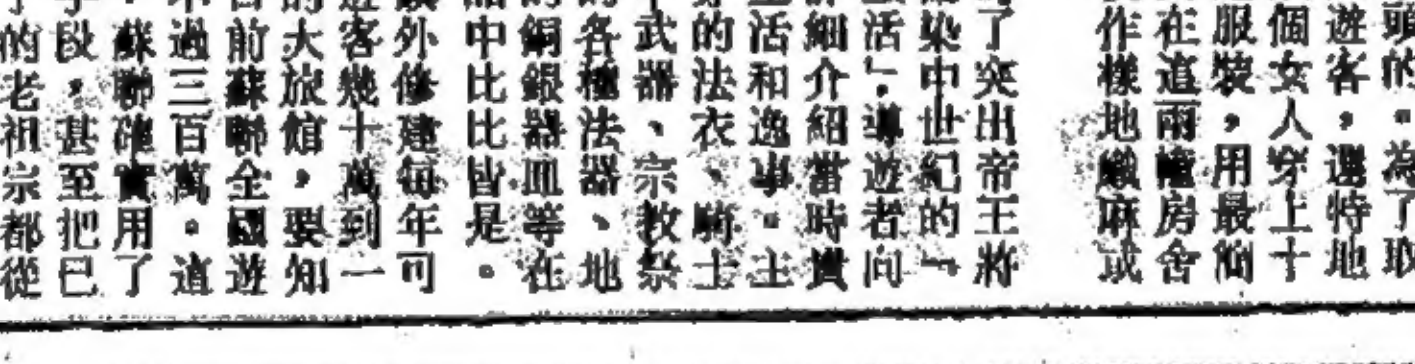 頭的。為了取
遊客，還特地
個女人穿上十
服裝，用最簡
在這兩幢房舍
作樣地織麻或
了突出帝王將
染中世紀的『
活』，導遊者向
細介紹當時貴
活和逸事。主
的法衣、騎士
武器、宗教祭
各種法器、地
銅銀器皿等在
中比比皆是。
外修建每年可
客幾十萬到一
大旅館，要知
前蘇聯全國遊
過三百萬。這
蘇聯確實用了
段，甚至把已
的老祖宗都從